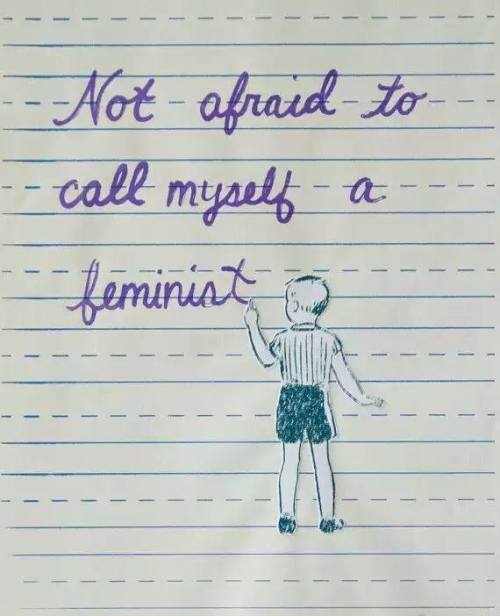 Not afraid to
call myself a
feminist